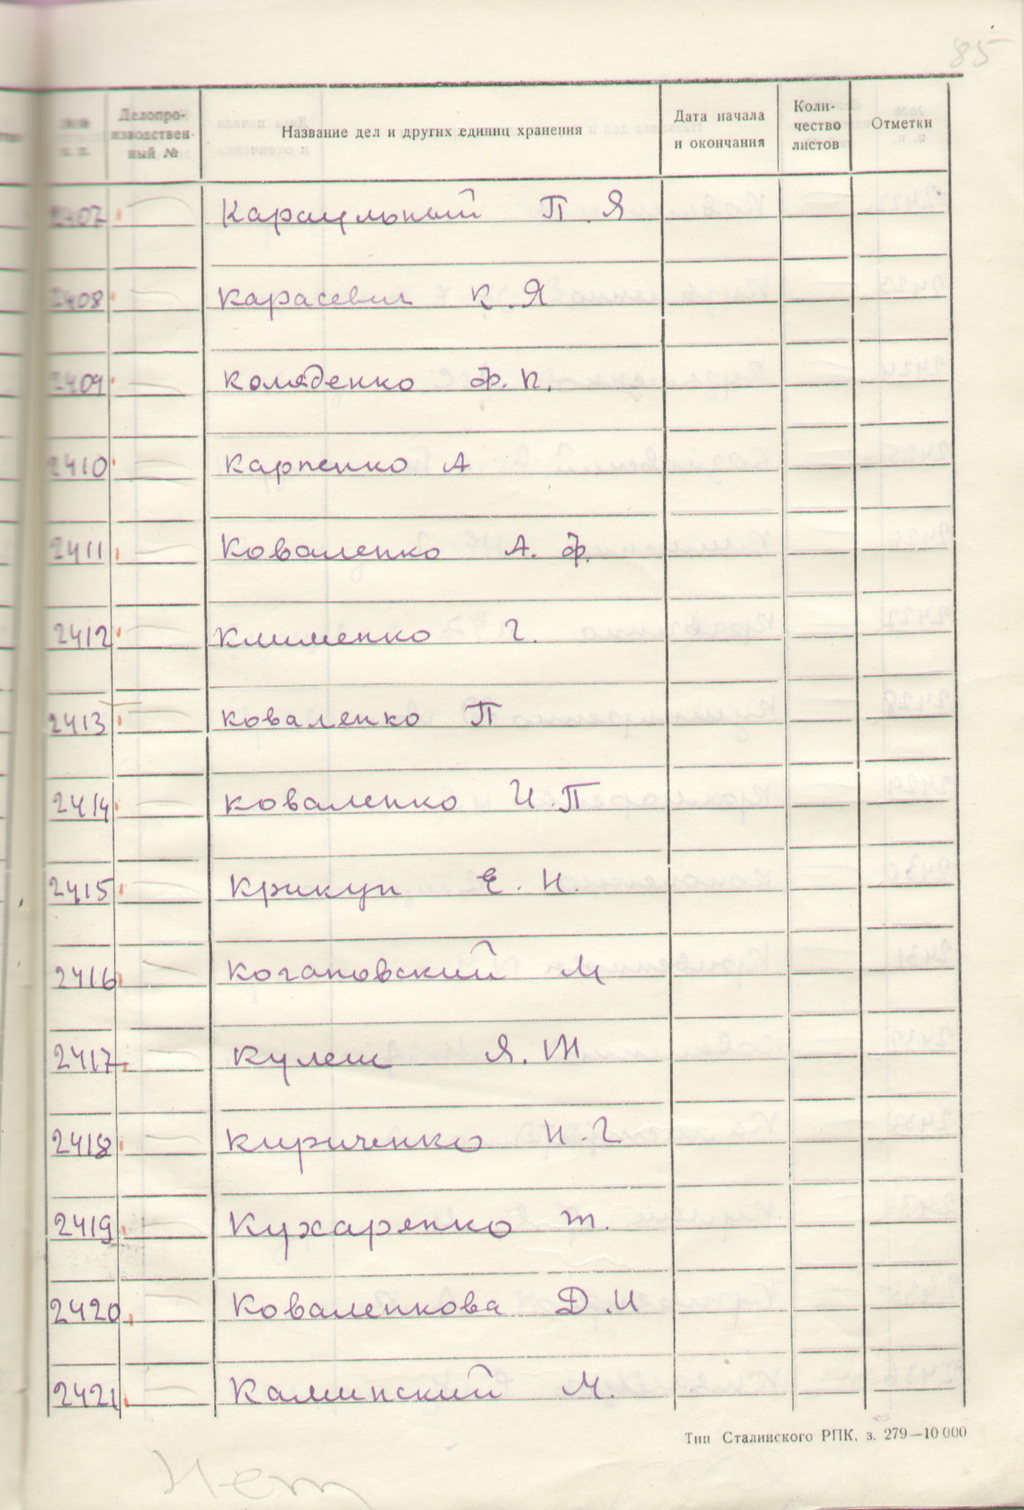 85
Делопро-
изводствен-
ный №
Название дел и других единиц хранения
Дата начала
и окончания
Коли-
чество
листов
Отметки
2407 Караульный П.Я
2408 Карасевич К.Я
2409 Коляденко Ф.П.
2410 Карпенко А
2411 Коваленко А.Ф.
2412 Клименко Г.
2413 Коваленко П
2414 Коваленко И.П
2415 Крикун Е.Н.
2416 Когановский М
2417 Кулеш Я.М
2418 Кириченко И.Г
2419 Кухаренко Т.
2420 Коваленкова Д.И
2421 Каминский М.
Тип Сталинского РПК, з. 279—10 000
Нет